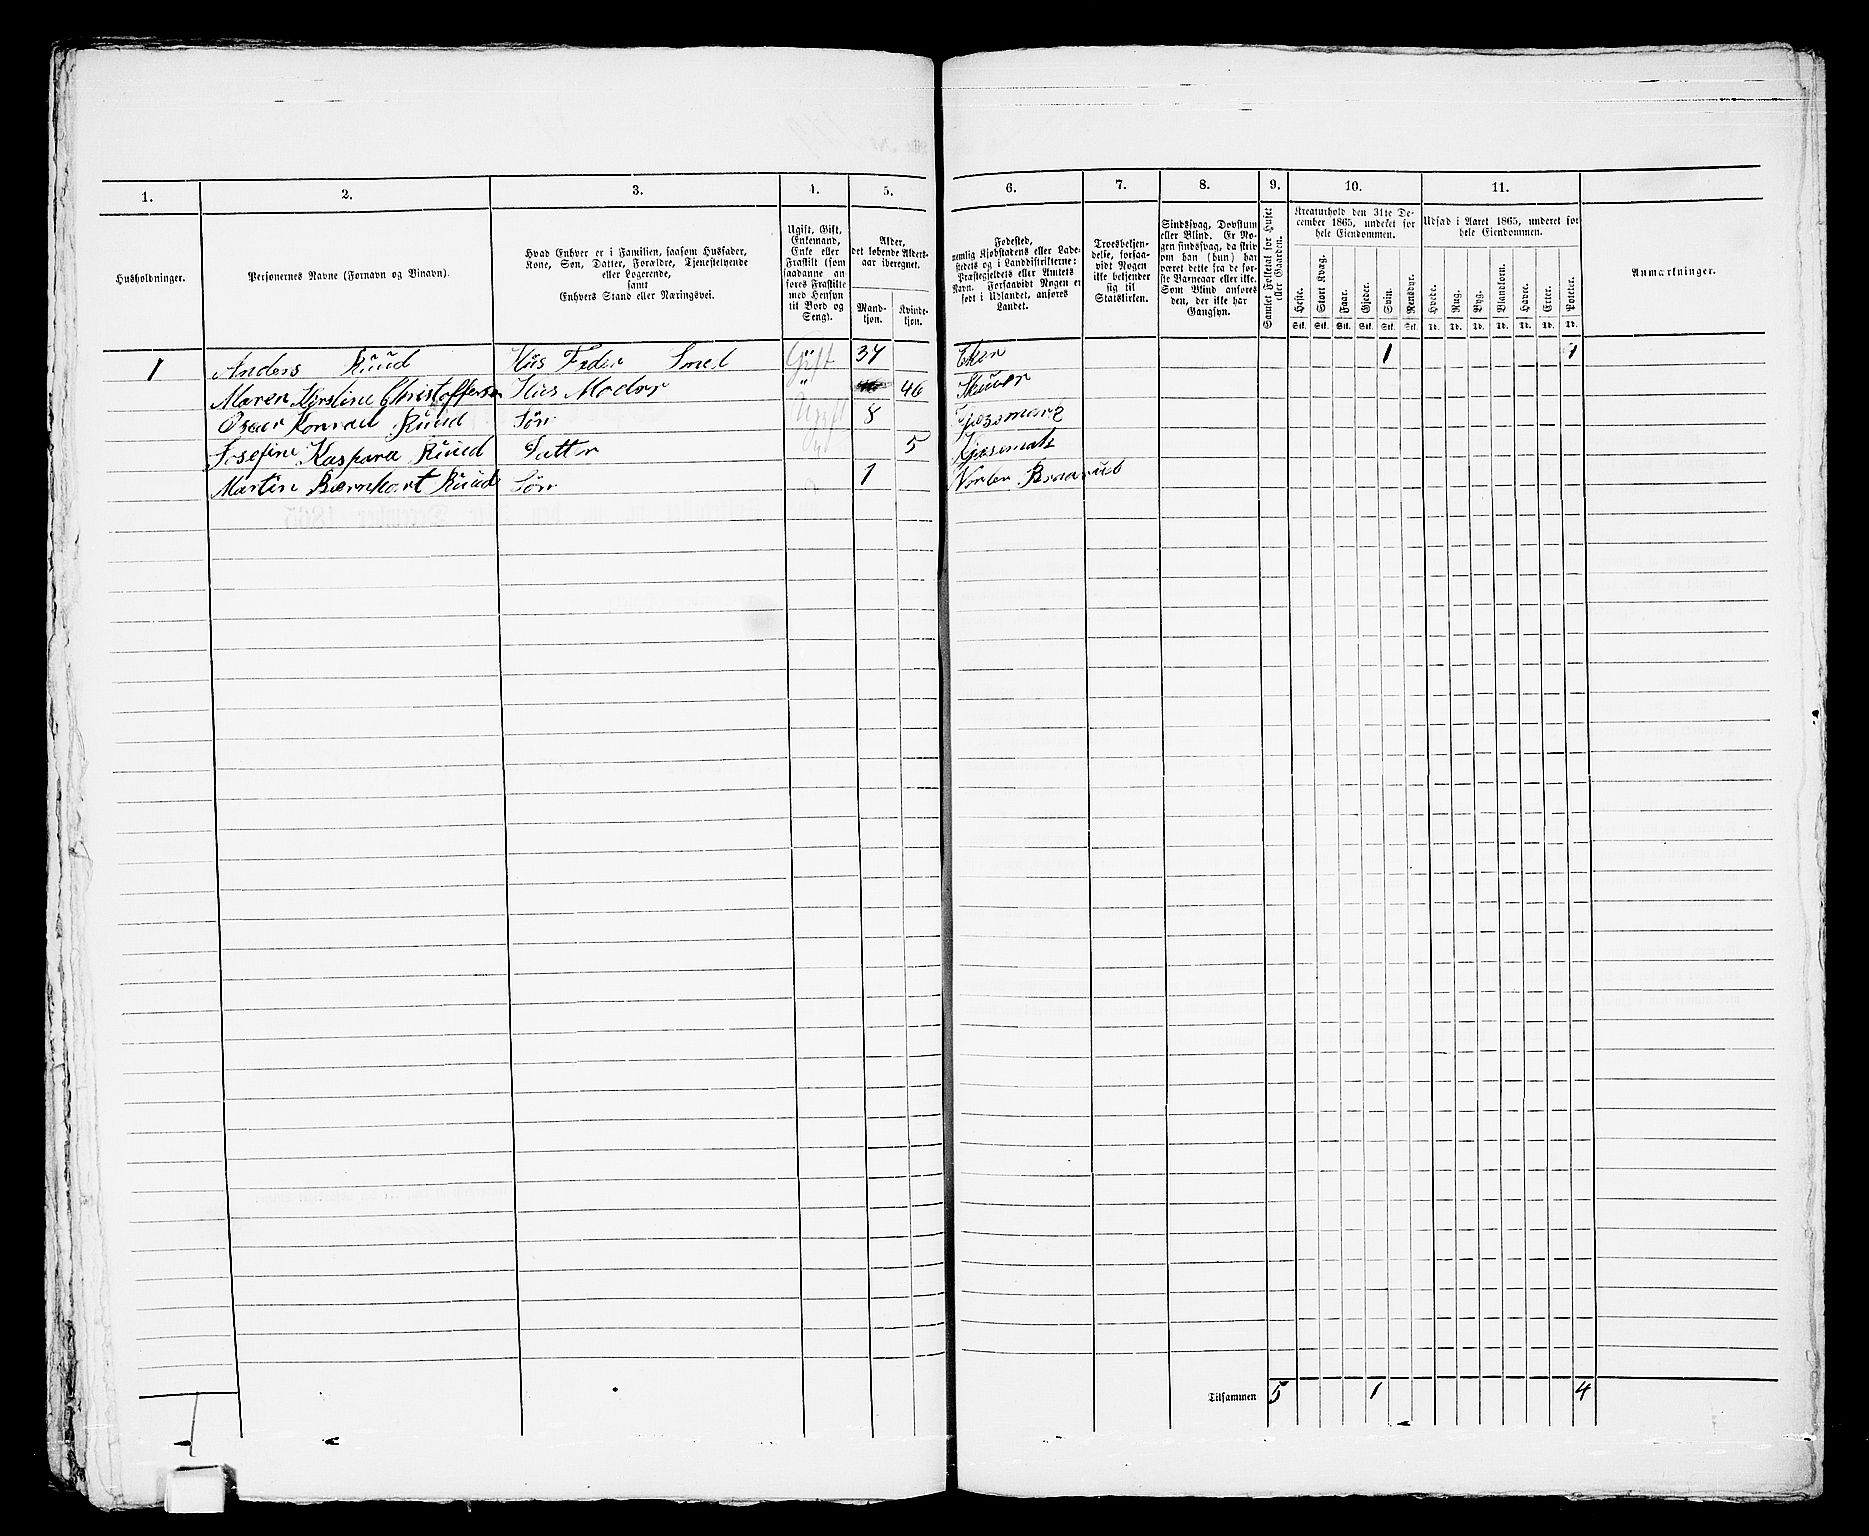 1. 2. 3. 4. 5. 6. 7. 8. 9. 10. 11.
Husholdninger.
Personernes Navne (Fornavn og Binavn).
Hvad Enhver er i Familien, saasom Husfader,
Kone, Søn, Datter, Forældre, Tjenestetyende
eller Logerende,
samt
Enhvers Stand eller Næringsvei.
Ugift, Gift,
Enkemand,
Enke eller
Fraskilt (som
saadanne an-
føres Fraskilte
med Hensyn
til Bord og
Seng).
Alder,
det løbende Alders-
aar iberegnet.
Mand-
kjøn.
Kvinde-
kjøn.
Fødested,
nemlig Kjøbstadens eller Lade-
stedets og i Landdistrikterne:
Præstegjeldets eller Amtets
Navn. Forsaavidt Nogen er
født i Udlandet, anføres
Landet.
Troesbekjen-
delse, forsaa-
vidt Nogen
ikke bekjender
sig til
Statskirken.
Sindssvag, Døvstum
eller Blind. Er No-
gen sindssvag, da skriv
om han (hun) har
været dette fra de før-
ste Barneaar eller ikke.
Som Blind anføres
den, der ikke har
Gangsyn.
Samlet Folketal for Huset
eller Gaarden.
Kreaturhold den 31te De-
cember 1865, underet for
hele Eiendommen.
Heste. Stort Kvæg. Faar. Gjeder. Svin. Rensdyr.
Stk. Stk. Stk. Stk. Stk. Stk.
Udsæd i Aaret 1865, underet for
hele Eiendommen.
Hvede. Rug. Byg. Blandkorn. Havre. Erter. Poteter.
Td. Td. Td. Td. Td. Td. Td.
Anmærkninger.
1 Anders Ruud Hus Fader Smed Gift 34 Eker 1 1
Maren Kjrstine Christoffersen Hus Moder " 46
Konrad Ruud Søn Ugift 8
Josefine Kaspara Ruud Datter 5
Martin Bærnhart Ruud Søn 1
Tilsammen 5 1 4
1